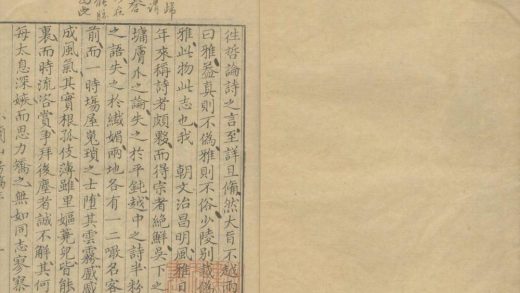 徃哲論詩之言至詳且備然大旨不越兩
曰雅葢真則不偽雅則不俗少陵別裁偽
雅此物此志也我 朝文治昌明風雅日
年來稱詩者頗夥而得宗者絶鮮吳下之
墉膚外之論失之於平鈍越中之詩半粉
之語失之於纖媚兩地各有一二噉名客
前而一時塲屋蒐瑣之士墮其雲霧
成風氣其實根孤伎薄雖里嫗兒皆能
裏而時流咨賞爭拜後塵者誠不解其何
每太息深嫉而思力矯之無如同志寥寥